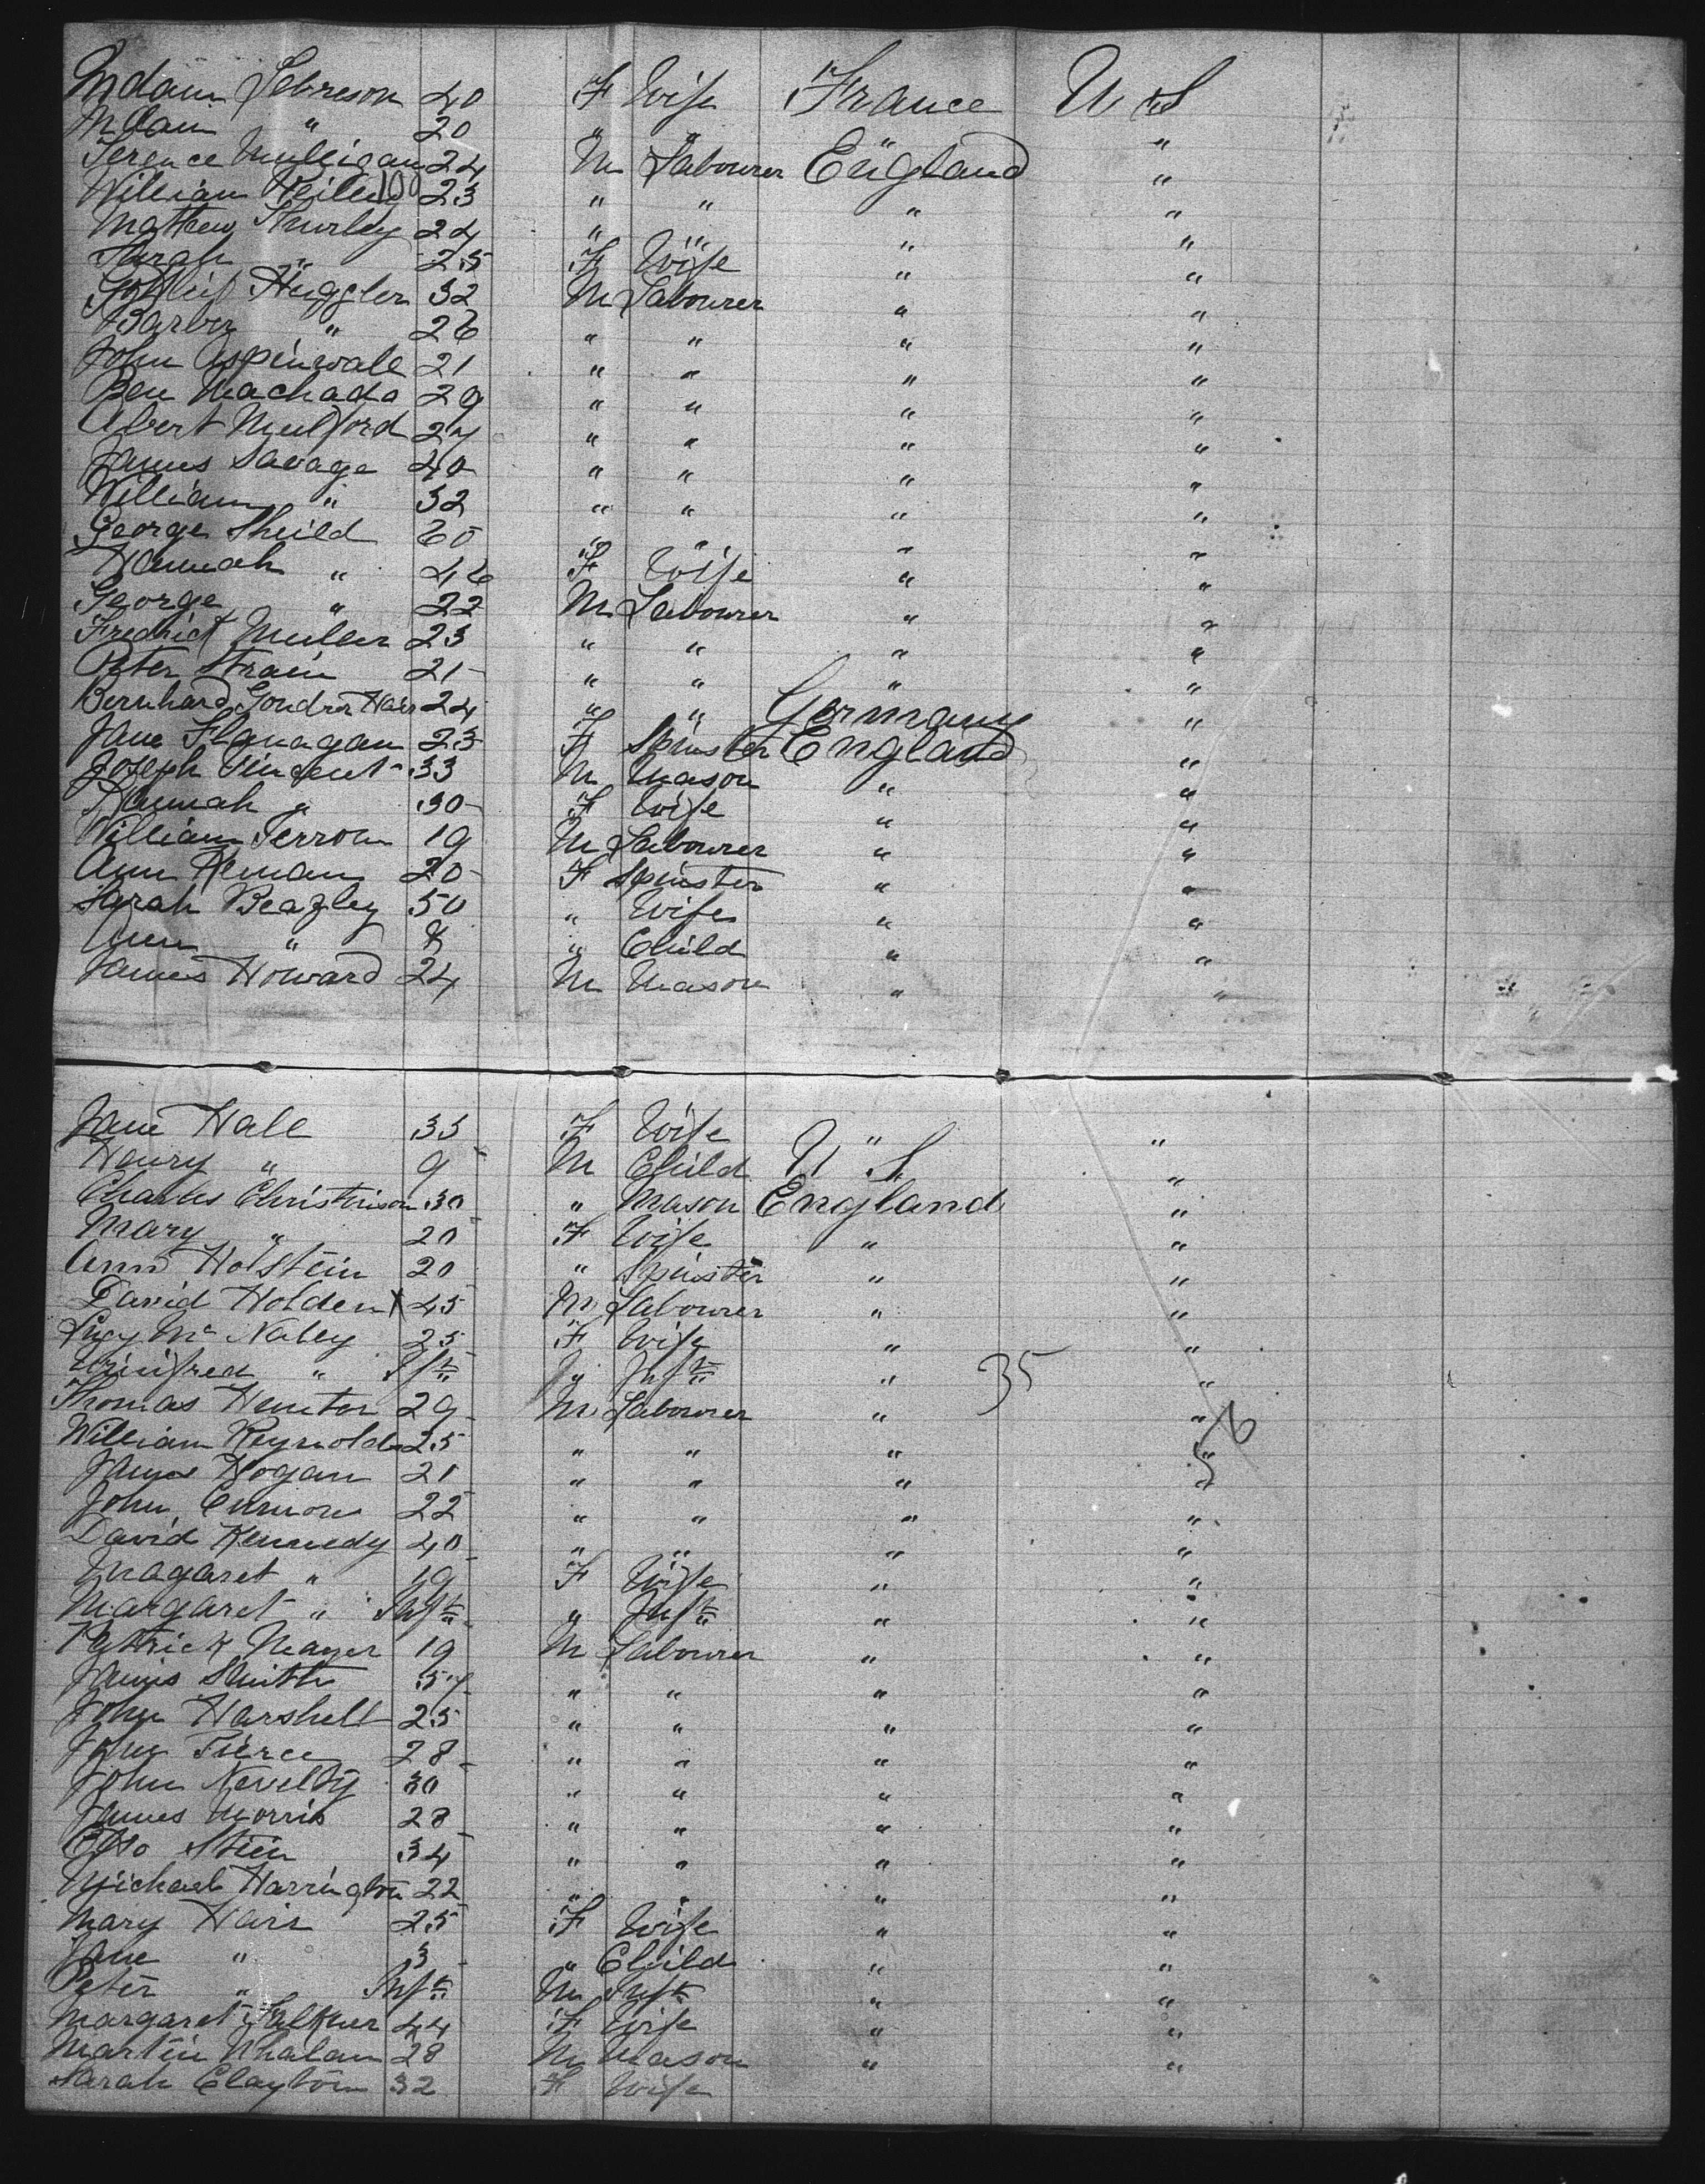 Mdam Lebreson 40 F Wife France U S
Mdam " 20 " " " "
Terence Mulligan 24 M Labourer England "
William Reilly 100 23 " " " "
Mathew Thurley 24 " " " "
Sarah " 25 F Wife " "
Gotleip Huggler 32 M Labourer " "
Barber " 26 " " " "
John Aspinwale 21 " " " "
Ben Machada 29 " " " "
Abert Mulford 27 " " " "
James Savage 40 " " " "
William " 32 " " " "
George Sheild 60 " " " "
Hannah " 46 F Wife " "
George " 22 M Labourer " "
Fredrick Muller 23 " " " "
Peter Strain 21 " " " "
Bernhard Hair 24 " " Germany "
Jane Flanagan 23 F Spinster England "
Joseph Vincent 33 M Mason " "
Hannah " 30 F Wife " "
William Perrow 19 M Labourer " "
Ann 20 F Spinster " "
Sarah Beazley 50 " Wife " "
Ann " 8 " Child " "
James Howard 24 M Mason " "
Jane Hall 35 F Wife " "
Henry " 9 M Child U S "
Charles Christinson 30 " Mason England "
Mary " 20 F Wife " "
Ann Holstein 20 " Spinster " "
David Holden X 45 M Labourer " "
Lucy Mc Nally 25 F Wife " "
Winifred " Inft " Inft " 35 "
Thomas Hunter 29 M Labourer " "
William Reynolds 25 " " " " 56
James Hogan 21 " " " "
John 22 " " " "
David Kennedy 40 " " " "
Magaret " 19 F Wife " "
Margaret " Inft " Inft " "
Patrick Mayer 19 M Labourer " "
James Smith 57 " " " "
John Harshell 25 " " " "
John Pierce 28 " " " "
John Nevelty 30 " " " "
James Morris 28 " " " "
Otto Stein 34 " " " "
Michael Harrington 22 " " " "
Mary Hair 25 F Wife " "
Jane " 3 " Child " "
Peter " Inft M Inft " "
Margaret Falkner 44 F Wife " "
Martin Whalan 28 M Mason " "
Sarah Clayton 32 F Wife